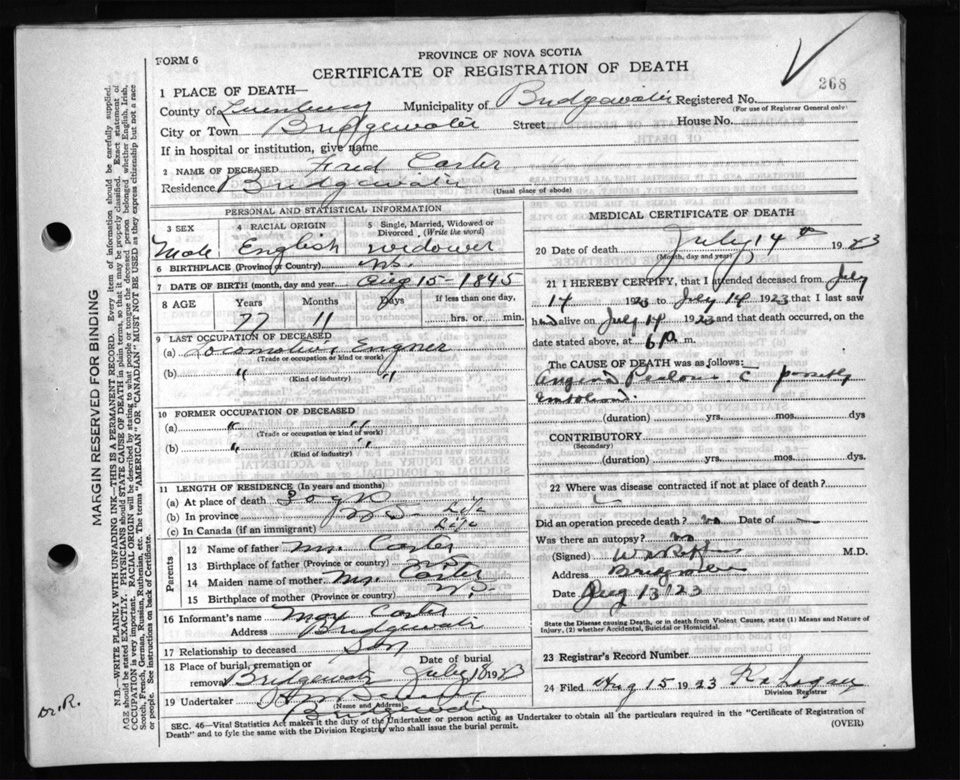 FORM 6
PROVINCE OF NOVA SCOTIA
CERTIFICATE OF REGISTRATION OF DEATH
268
1 PLACE OF DEATH—
County of Lunenburg Municipality of Bridgewater Registered No.
(For use of Registrar General only)
City or Town Bridgewater Street House No.
If in hospital or institution, give name
2 NAME OF DECEASED Fred Carter
Residence Bridgewater
(Usual place of abode)
PERSONAL AND STATISTICAL INFORMATION
3 SEX 4 RACIAL ORIGIN 5 Single, Married, Widowed or Divorced (Write the word)
Male English widower
6 BIRTHPLACE (Province or Country) N.S.
7 DATE OF BIRTH (month, day and year) Aug 15 - 1845
8 AGE Years Months Days If less than one day,
77 11 hrs. or min.
9 LAST OCCUPATION OF DECEASED
(a) Locomotive Engner
(Trade or occupation or kind or work)
(b) " "
(Kind of industry)
10 FORMER OCCUPATION OF DECEASED
(a) " "
(Trade or occupation or kind of work)
(b) " "
(Kind of industry)
11 LENGTH OF RESIDENCE (In years and months)
(a) At place of death
(b) In province N S Life
(c) In Canada (if an immigrant) Life
Parents
12 Name of father Mr. Carter
13 Birthplace of father (Province or country) N.S.
14 Maiden name of mother Mrs. Carter
15 Birthplace of mother (Province or country) N.S.
16 Informant's name Max Carter
Address Bridgewater
17 Relationship to deceased Son
18 Place of burial, cremation or removal Bridgewater Date of burial July 18 1923
19 Undertaker
(Name and Address)
Bridgewater
MEDICAL CERTIFICATE OF DEATH
20 Date of death July 14th 1923
(Month, day and year)
21 I HEREBY CERTIFY, that I attended deceased from July
14 1923 to July 14 1923 that I last saw
h alive on July 14 1923 and that death occurred, on
date stated above, at 6 P. m.
The CAUSE OF DEATH was as follows:
Angina c possibly
(duration) yrs. mos. dys
CONTRIBUTORY
(Secondary)
(duration) yrs. mos. dys.
22 Where was disease contracted if not at place of death?
Did an operation precede death? no Date of —
Was there an autopsy? no
(Signed) M.D.
Address Bridgewater
Date Aug 13 23
State the Disease causing Death, or in death from Violent Causes, state (1) Means and Nature of Injury, (2) whether Accidental, Suicidal or Homicidal.
23 Registrar's Record Number
24 Filed Aug 15 1923
Division Registrar
SEC. 46—Vital Statistics Act makes it the duty of the Undertaker or person acting as Undertaker to obtain all the particulars required in the "Certificate of Registration of
Death" and to fyle the same with the Division Registry who shall issue the burial permit.
(OVER)
MARGIN RESERVED FOR BINDING
N.B.—WRITE PLAINLY WITH UNFADING INK—THIS IS A PERMANENT RECORD. Every item of information should be carefully supplied.
AGE should be stated EXACTLY. PHYSICIANS should STATE CAUSE OF DEATH in plain terms, so that it may be properly classified. Exact statement of
OCCUPATION is very important. RACIAL ORIGIN will be described by stating to what people or tongue the deceased person belonged whether English, Irish,
Scotch, French, German, Russian, Ruthenian, etc. The terms "AMERICAN" OR "CANADIAN" MUST NOT BE USED as they express citizenship but not a race
or people. See instructions on back of Certificate.
Dr. R.